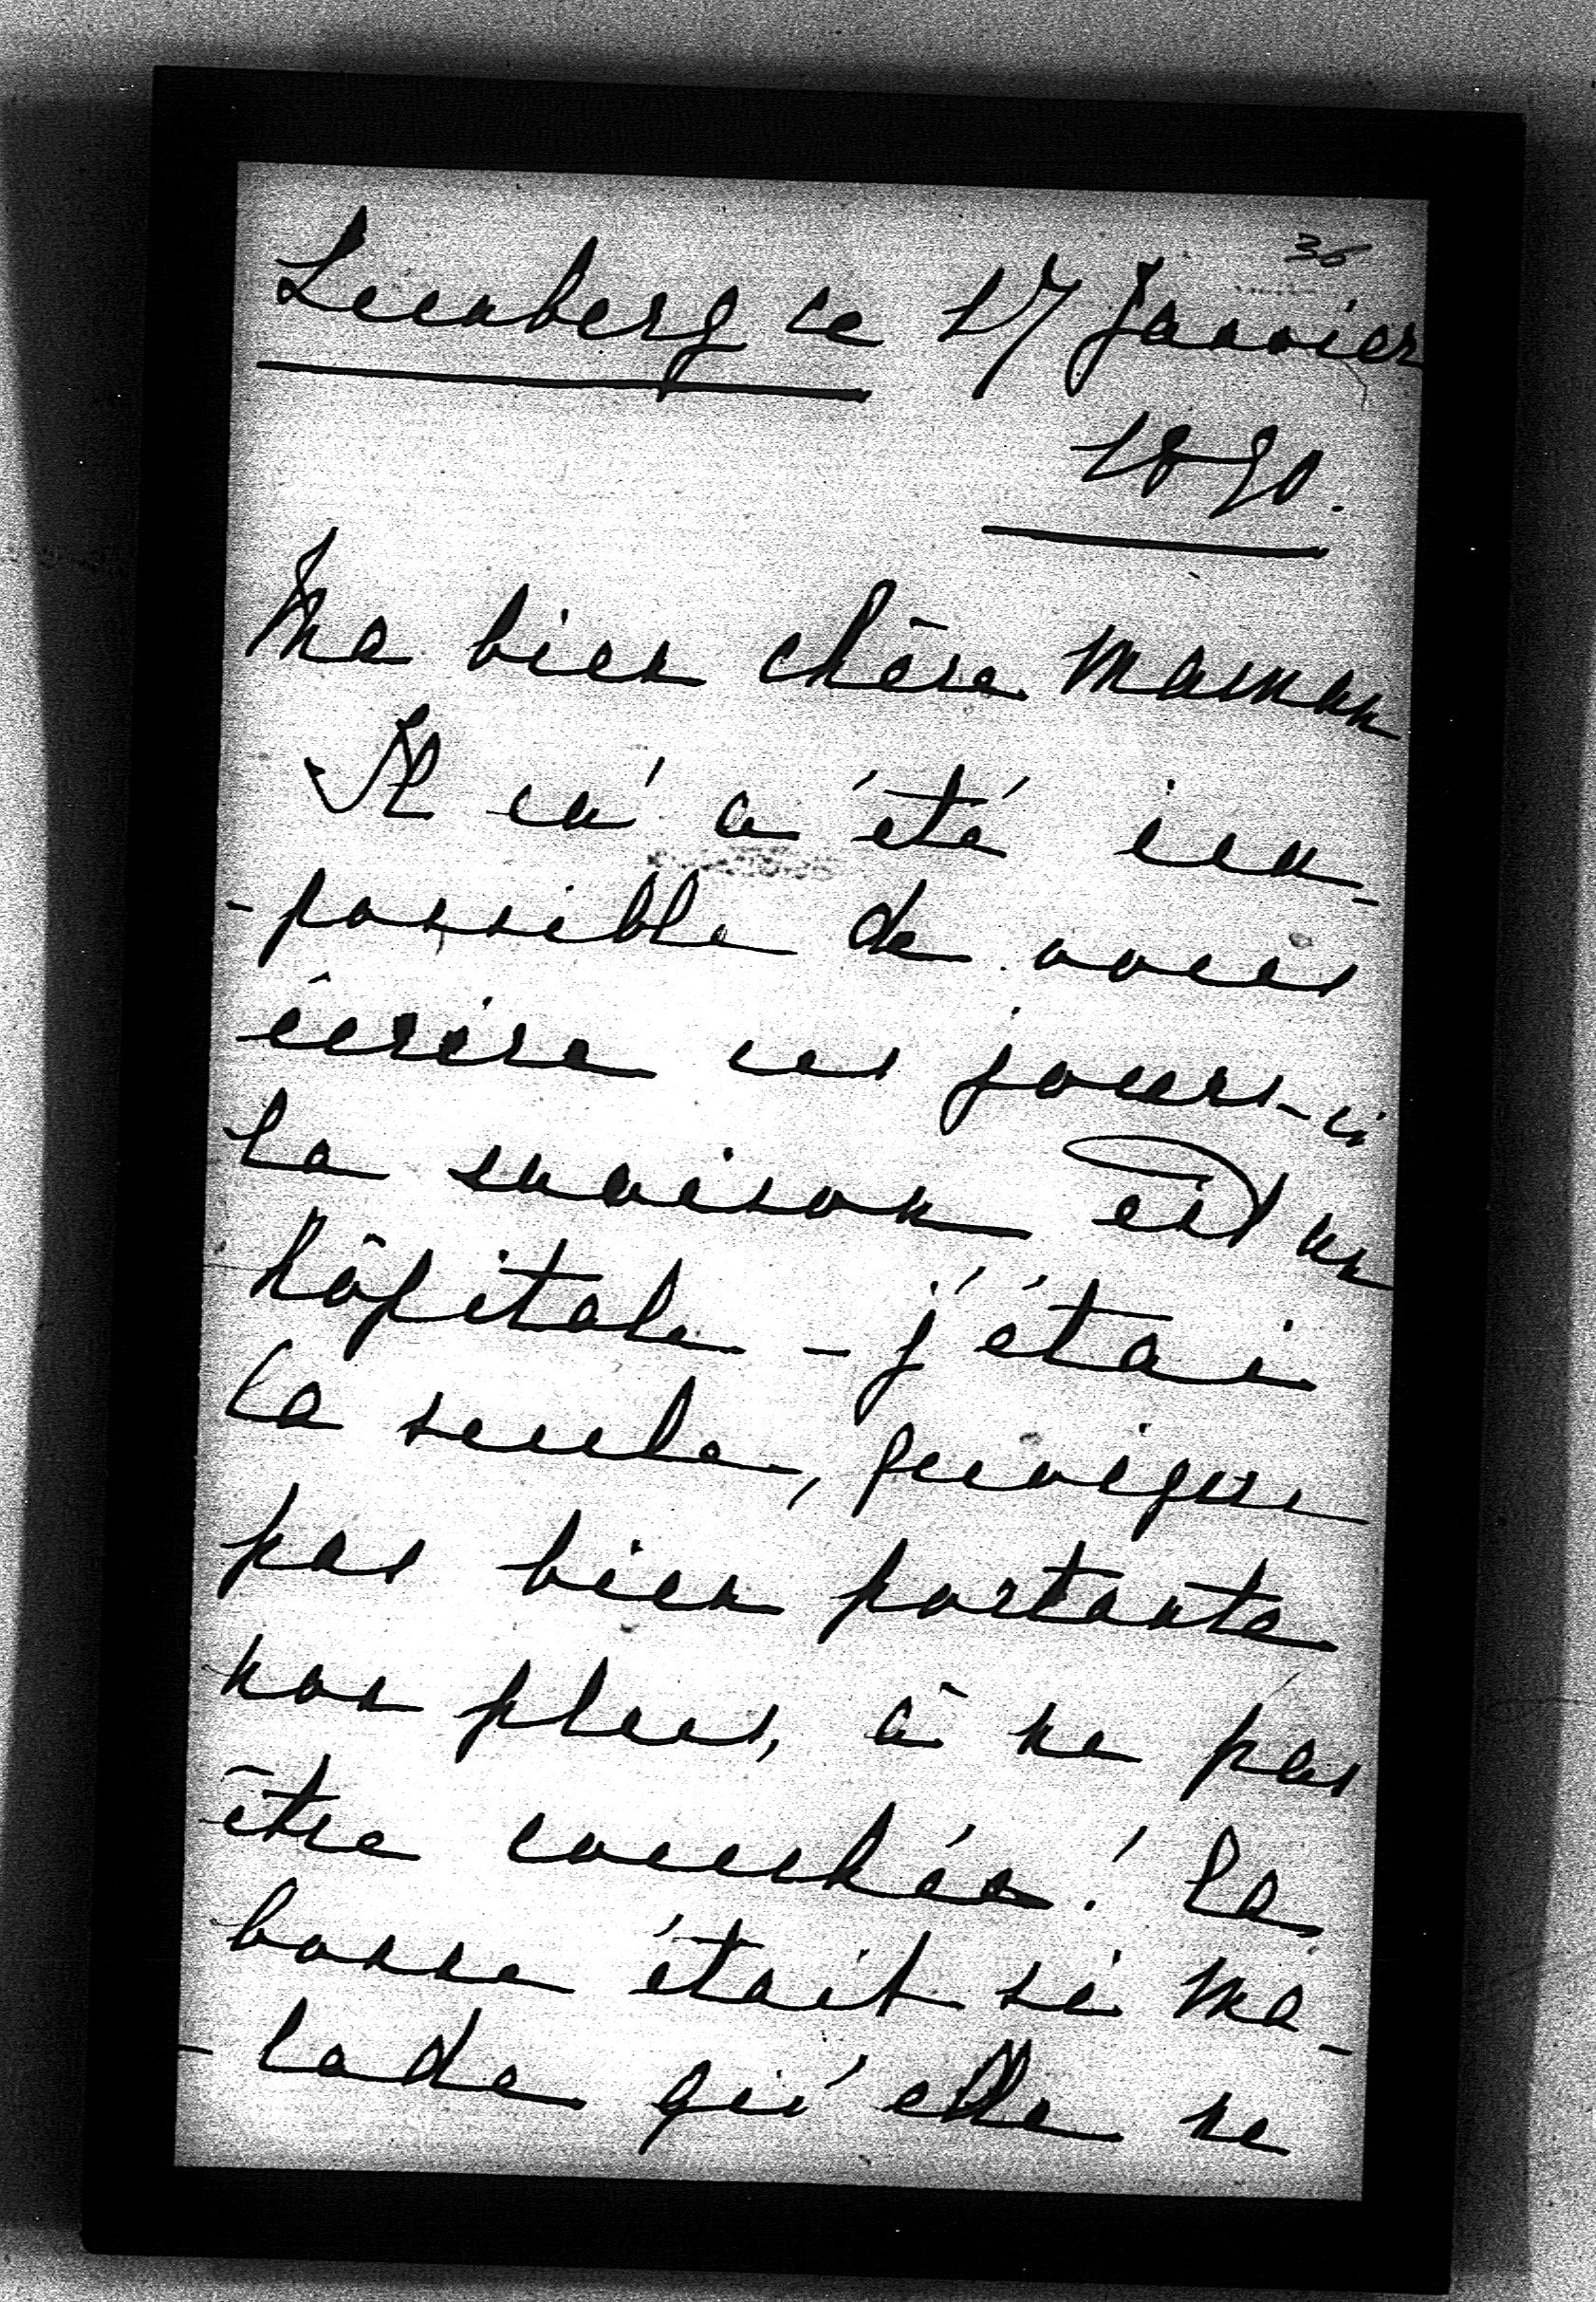 36
Lemberg ce 17 Janvier
1890.
Ma bien chère Maman
Il m'a été im-
-possible de vous
écrire ces jours-ci
la maison est un
hôpitale - j'étai
la seule, quoique
pas bien portante
non plus, à ne pas
être couchée! la
bonne était si ma-
-lade qu'elle ne